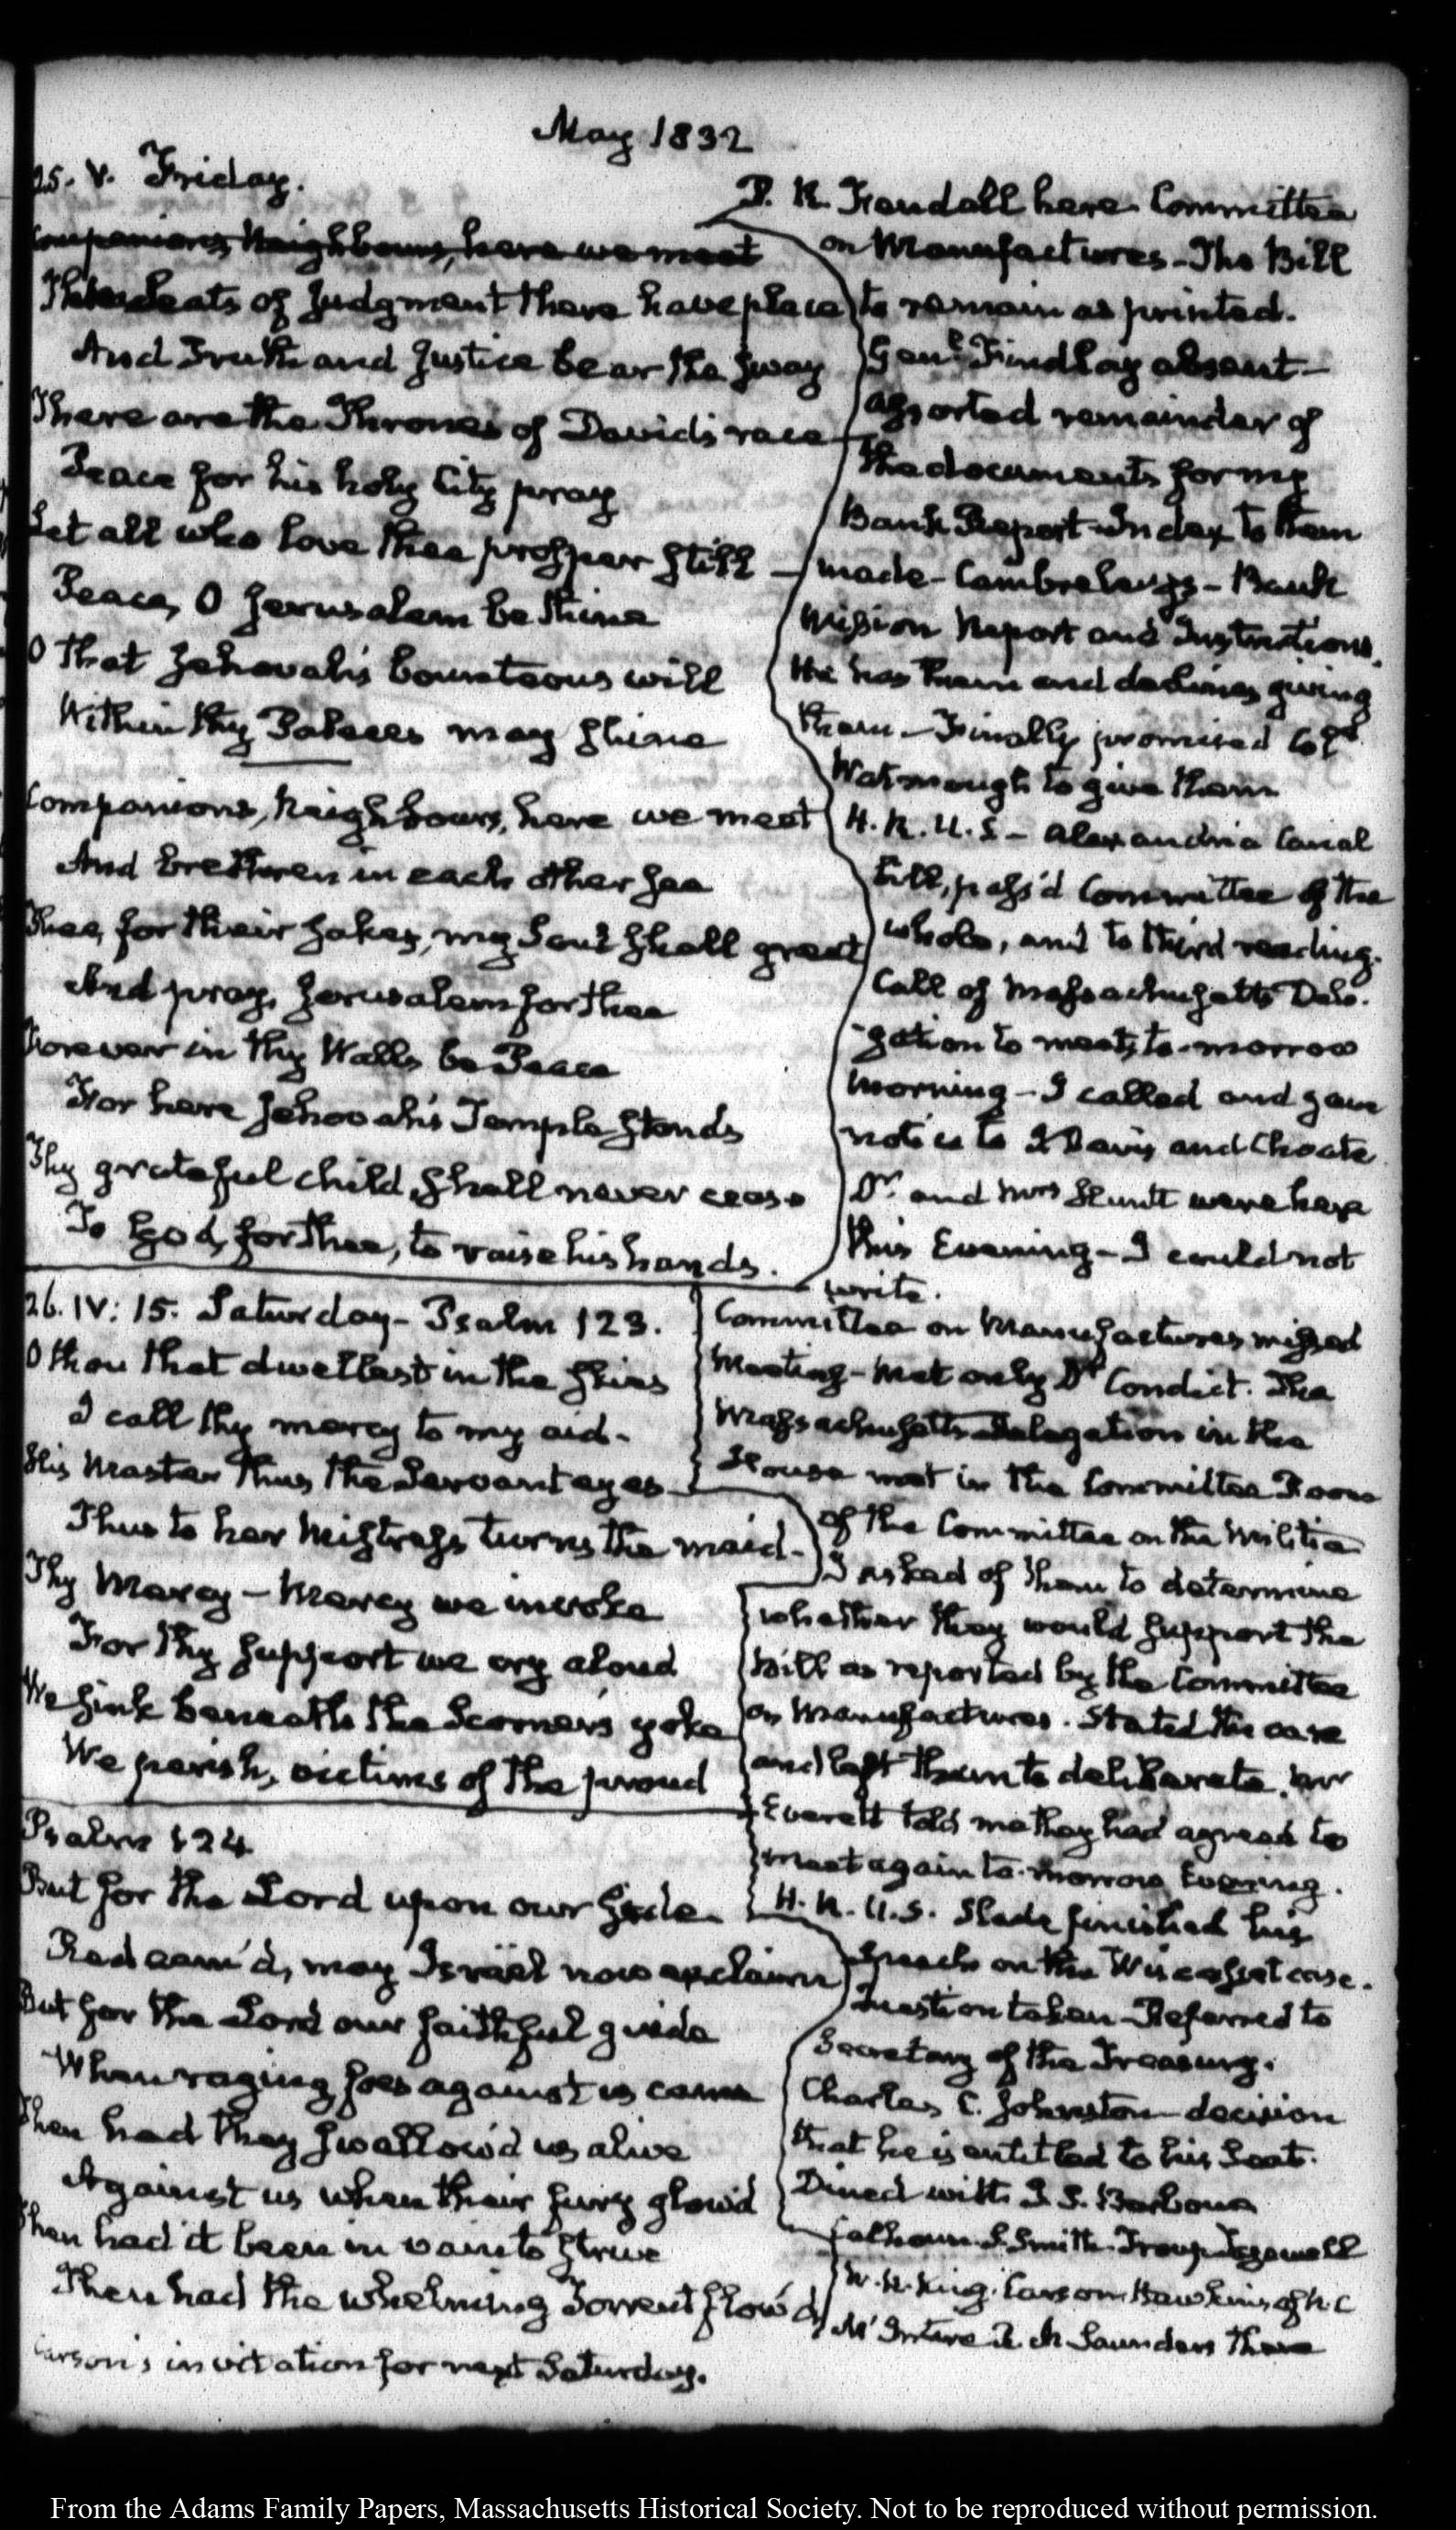 May 1832
25. V. Friday.
Companions, Neighbours, here we meet
The Seats of Judgment there have place
And Truth and Justice bear the sway
There are the Thrones of David's race
Peace for his holy City pray
Let all who love thee prosper still
Peace, O Jerusalem be thine
O that Jehovah's bounteous will
Within thy Palaces may shine
Companions, Neighbours, here we meet
And Brethren in each other see
Thee, for their sakes, my Soul shall greet
And pray, Jerusalem for thee
Forever in thy Walls be Peace
For here Jehovah's Temple stands
Thy grateful child, shall never cease
To God, for thee, to raise his hands.
D. R. Kendall here Committee
on Manufactures - The Bill
to remain as printed.
Genl. Findlay absent -
assorted remainder of
the documents for my
Bank Report - Index to them
made - Cambreleng - Bank
Mission Report and Instructions.
He has them and declines giving
them - Finally promised Coll.
Watmough to give them
H. R. U. S - Alexandria Canal
bill, pass'd Committee of the
whole, and to third reading.
Call of Massachusetts Dele-
gation to meet, to-morrow
morning - I called and gave
notice to J Davis and Choate
Dr. and Mrs Hunt were here
this Evening - I could not
write.
26. IV: 15. Saturday - Psalm 123.
O thou that dwellest in the skies
I call thy mercy to my aid -
His Master thus the Servant eyes
Thus to her Mistress turns the maid -
Thy Mercy - Mercy we invoke
For thy support we cry aloud
We sink beneath the Scorner's yoke
We perish, victims of the proud
Psalm 124.
But for the Lord upon our side
Redeem'd, may Israel now exclaim
But for the Lord our faithful guide
When raging foes against us came
Then had they swallow'd us alive
Against us when their fury glow'd
Then had it been in vain to strive
Then had the whelming Torrent flow'd
Committee on Manufactures missed
Meeting - Met only Dr Condict. The
Massachusetts Delegation in the
House met in the Committee Room
of the Committee on the Militia
I asked of them to determine
whether they would support the
bill as reported by the Committee
on Manufactures. Stated the case
and left them to deliberate. Mr
Everett told me they had agreed to
meet again to-morrow Evening.
H. R. U. S. Slade finished his
speech on the Wiscasset case.
Question taken - Referred to
Secretary of the Treasury.
Charles C. Johnston - decision
that he is entitled to his Seat.
Dined with J. S. Barbour
Calhoun. S. Smith. Troup. Tazewell
W. R. King. Carson. Hawkins of N. C
McIntire R. M Saunders there
Carson's invitation for next Saturday.
From the Adams Family Papers, Massachusetts Historical Society. Not to be reproduced without permission.